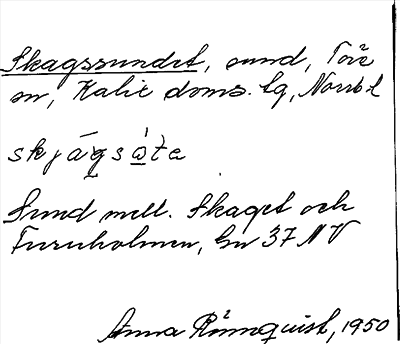 Skagssundet, sund, Töre
sn, Kalix doms. tg, Norrb. l
skjágsòta
Sund mell. Skaget och
Furuholmen, bv 37 NV
Anna Rönnquist, 1950